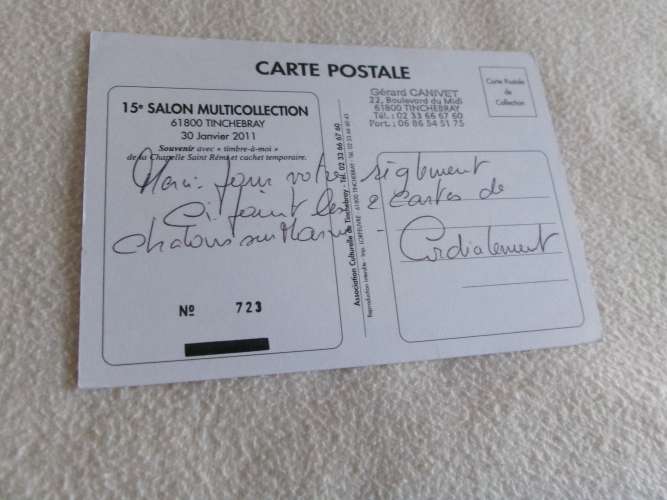 CARTE POSTALE
15e SALON MULTICOLLECTION
61800 TINCHEBRAY
30 Janvier 2011
Souvenir avec « timbre-à-moi »
de la Chapelle Saint Rémi et cachet temporaire.
Gérard CANIVET
22, Boulevard du Midi
61800 TINCHEBRAY
Tél. : 02 33 66 67 60
Port. : 06 86 54 51 75
Carte Postale
de
Collection
Merci pour votre règlement
Ci joint les 2 cartes de
Chalons sur Marne -
Cordialement
Association Culturelle de Tinchebray - Tél. 02 33 66 67 60
Nº 723